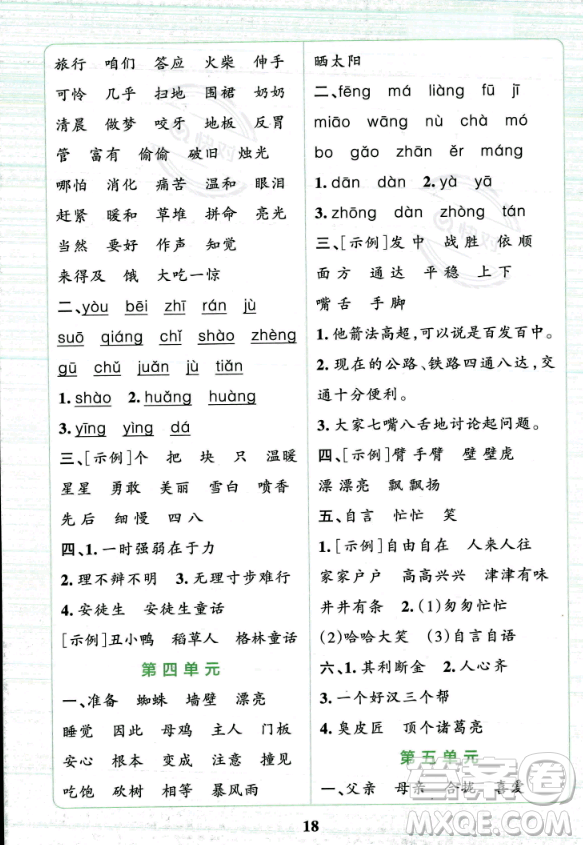 旅行 咱们 答应 火柴 伸手
可怜 几乎 扫地 围裙 奶奶
清晨 做梦 咬牙 地板 反胃
管 富有 偷偷 破旧 烛光
哪怕 消化 痛苦 温和 眼泪
赶紧 暖和 草堆 拼命 亮光
当然 要好 作声 知觉
来得及 饿 大吃一惊
二、yòu bēi zhī rán jù
suō qiáng chǐ shào zhèng
gū chǔ juǎn jù tiān
1.shào 2.huǎng huàng
3.yīng yìng dá
三、[示例]个 把 块 只 温暖
星星 勇敢 美丽 雪白 喷香
先后 细慢 四八
四、1.一时强弱在于力
2.理不辩不明 3.无理寸步难行
4.安徒生 安徒生童话
[示例]丑小鸭 稻草人 格林童话
第四单元
一、准备 蜘蛛 墙壁 漂亮
睡觉 因此 母鸡 主人 门板
安心 根本 变成 注意 撞见
吃饱 砍树 相等 暴风雨
晒太阳
二、fēng má liàng fū jī
miāo wāng nù chà mó
bo gǎo zhān ěr máng
1.dān dàn 2.yà yā
3.zhōng dàn zhòng tán
三、[示例]发中 战胜 依顺
面方 通达 平稳 上下
嘴舌 手脚
1.他箭法高超,可以说是百发百中。
2.现在的公路、铁路四通八达,交
通十分便利。
3.大家七嘴八舌地讨论起问题。
四、[示例]臂 手臂 壁 壁虎
漂 漂亮 飘 飘扬
五、自言 忙忙 笑
1.[示例]自由自在 人来人往
家家户户 高高兴兴 津津有味
井井有条 2.(1)匆匆忙忙
(2)哈哈大笑 (3)自言自语
六、1.其利断金 2.人心齐
3.一个好汉三个帮
4.臭皮匠 顶个诸葛亮
第五单元
一、父亲 母亲 合拢 喜爱
18
答案圈
MXQE.COM